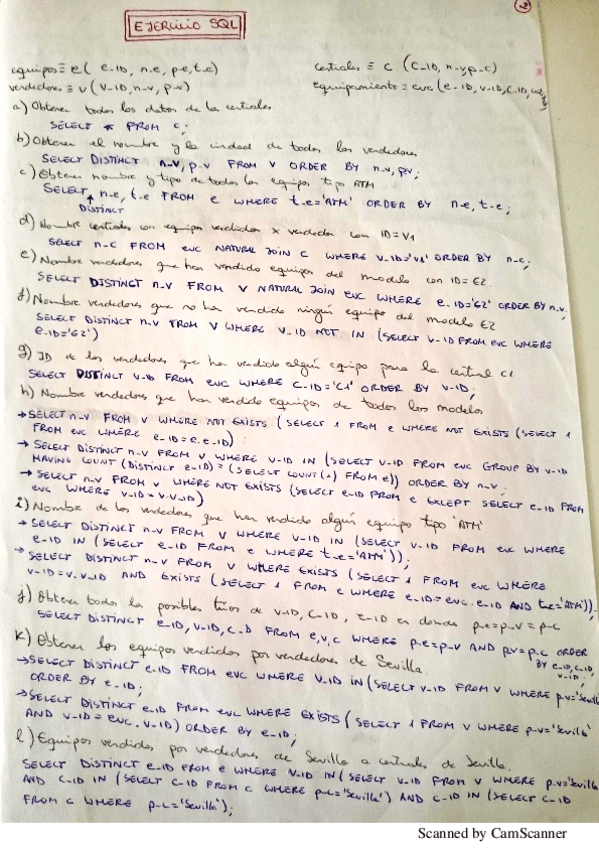 2
EJERCICIO SQL
equipos ≡ e( e-ID, n.e, p-e, t-e)
centrales ≡ c (C-ID, n-c, p-c)
vendedores ≡ v (V-ID, n-v, p-v)
equipamiento ≡ evc (e-ID, V-ID, C-ID,
a) Obtener todos los datos de la centrales
SELECT * FROM c;
b) Obtener el nombre y la ciudad de todos los vendedores
SELECT DISTINCT n-v, p.v FROM V ORDER BY n-v, pv;
c) Obtener nombre y tipo de todos los equipos tipo ATM
SELECT n-e, t-e FROM e WHERE t-e='ATM' ORDER BY n-e, t-e;
DISTINCT
d) Nombre centrales con equipos vendidos x vendedor con ID=V1
SELECT n-c FROM evc NATURAL JOIN C WHERE V-ID='V1' ORDER BY n-c;
e) Nombre vendedores que han vendido equipos del modelo con ID = E2.
SELECT DISTINCT n-v FROM V NATURAL JOIN evc WHERE e-ID='E2' ORDER BY n-v.
f) Nombre vendedores que no ha vendido ningún equipo del modelo E2
SELECT DISTINCT n.v FROM V WHERE V-ID NOT IN (SELECT V-ID FROM evc WHERE
e-ID='E2')
g) ID de los vendedores que ha vendido algún equipo para la central C1
SELECT DISTINCT V-ID FROM evc WHERE C-ID='C1' ORDER BY V-ID;
h) Nombre vendedores que han vendido equipos de todos los modelos
→ SELECT n-v FROM V WHERE NOT EXISTS (SELECT 1 FROM e WHERE NOT EXISTS (SELECT 1
FROM evc WHERE e-ID=e.e-ID)
→ SELECT DISTINCT n-v FROM V WHERE V-ID IN (SELECT V-ID FROM evc GROUP BY V-ID
HAVING COUNT (DISTINCT e-ID) = (SELECT COUNT(*) FROM e)) ORDER BY n-v;
→ SELECT n-v FROM V WHERE NOT EXISTS (SELECT e-ID FROM e EXCEPT SELECT e-ID FROM
evc WHERE V-ID = V.V-ID)
i) Nombre de los vendedores que han vendido algún equipo tipo 'ATM'
→ SELECT DISTINCT n-v FROM V WHERE V-ID IN (SELECT V-ID FROM evc WHERE
e-ID IN (SELECT e-ID FROM e WHERE t-e='ATM'));
→ SELECT DISTINCT n-v FROM V WHERE EXISTS (SELECT 1 FROM evc WHERE
V-ID=V.V-ID AND EXISTS (SELECT 1 FROM e WHERE e-ID=evc.e-ID AND t-e='ATM'));
j) Obtener todos los posibles tríos de V-ID, C-ID, E-ID en donde p-e=p-v=p-c
SELECT DISTINCT e-ID, V-ID, C-D FROM e,v,c WHERE p-e=p-v AND p.v=p-c ORDER
BY e-ID, C-ID,
V-ID;
k) Obtener los equipos vendidos por vendedores de Sevilla.
→ SELECT DISTINCT e-ID FROM evc WHERE V-ID IN (SELECT V-ID FROM V WHERE p-v='Sevilla'
ORDER BY e-ID;
→ SELECT DISTINCT e-ID FROM evc WHERE EXISTS (SELECT 1 FROM V WHERE p-v='Sevilla'
AND V-ID = evc.V-ID) ORDER BY e-ID;
l) Equipos vendidos por vendedores de Sevilla a centrales de Sevilla.
SELECT DISTINCT e-ID FROM e WHERE V-ID IN (SELECT V-ID FROM V WHERE p-v='Sevilla
AND C-ID IN (SELECT C-ID FROM C WHERE p-c='Sevilla') AND C-ID IN (SELECT C-ID
FROM C WHERE p-c='Sevilla');
Scanned by CamScanner